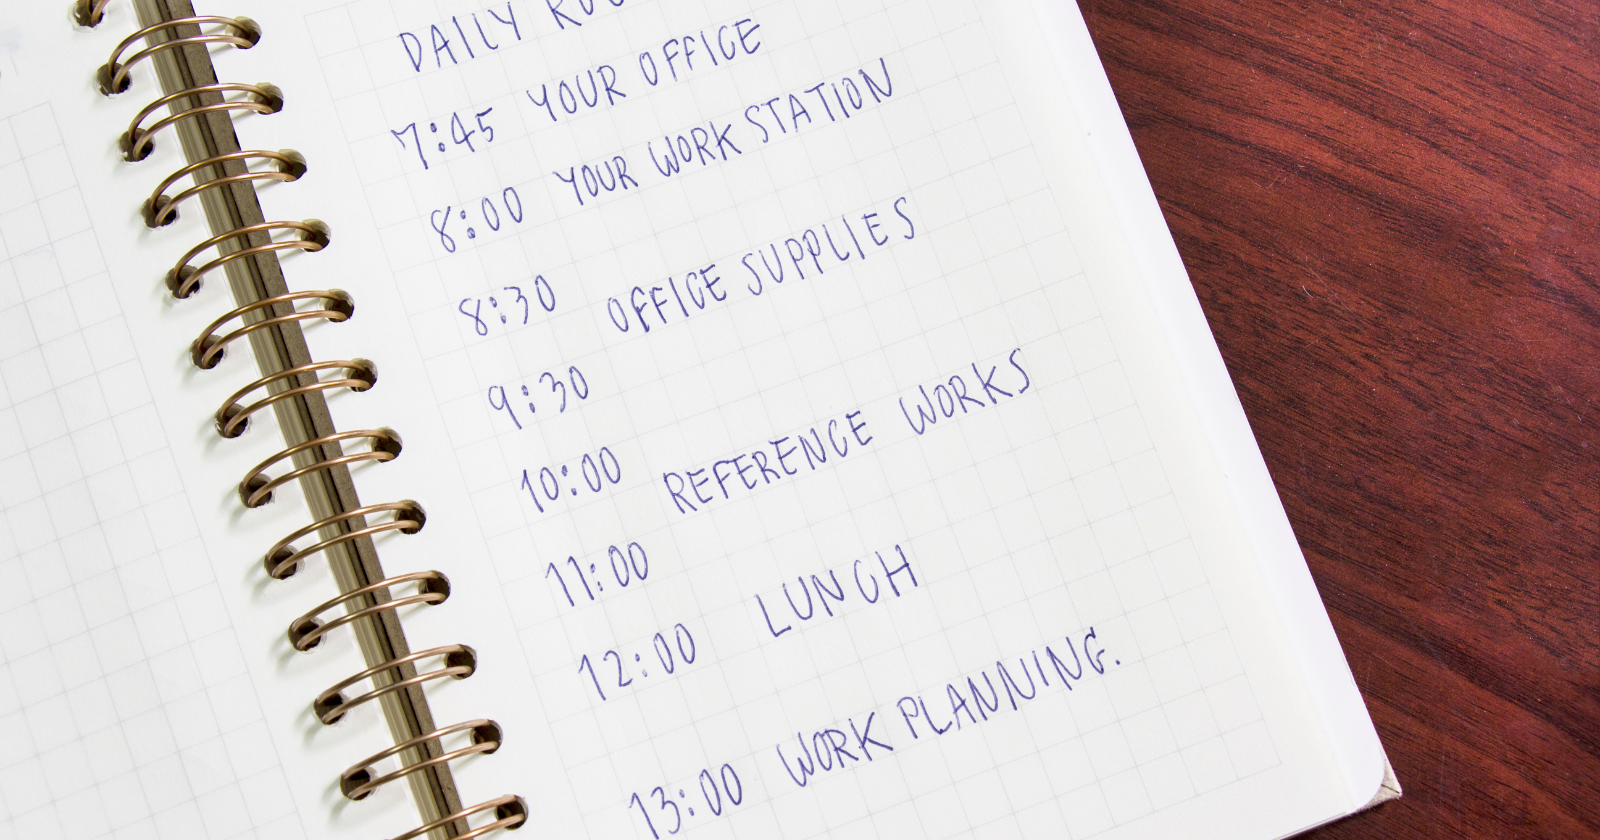 DAILY
7:45 YOUR OFFICE
8:00 YOUR WORK STATION
8:30 OFFICE SUPPLIES
9:30
10:00 REFERENCE WORKS
11:00
12:00 LUNCH
13:00 WORK PLANNING.